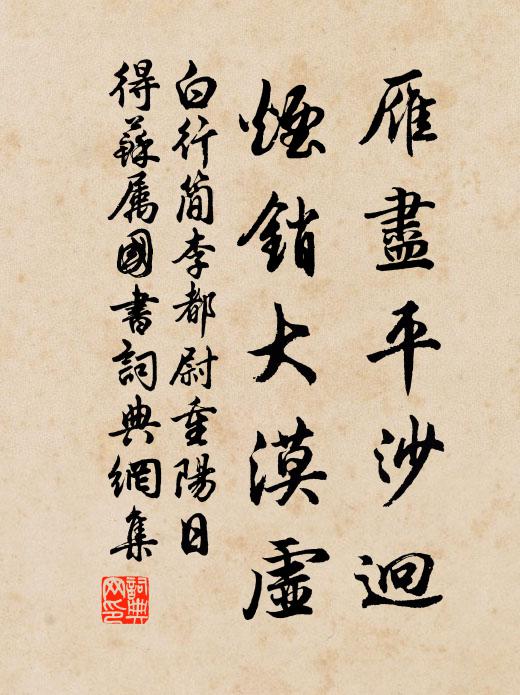 雁盡平沙迥
煙銷大漠虛
白行简李都尉重陽日
得蘇属國書詞典網集
詞典網印